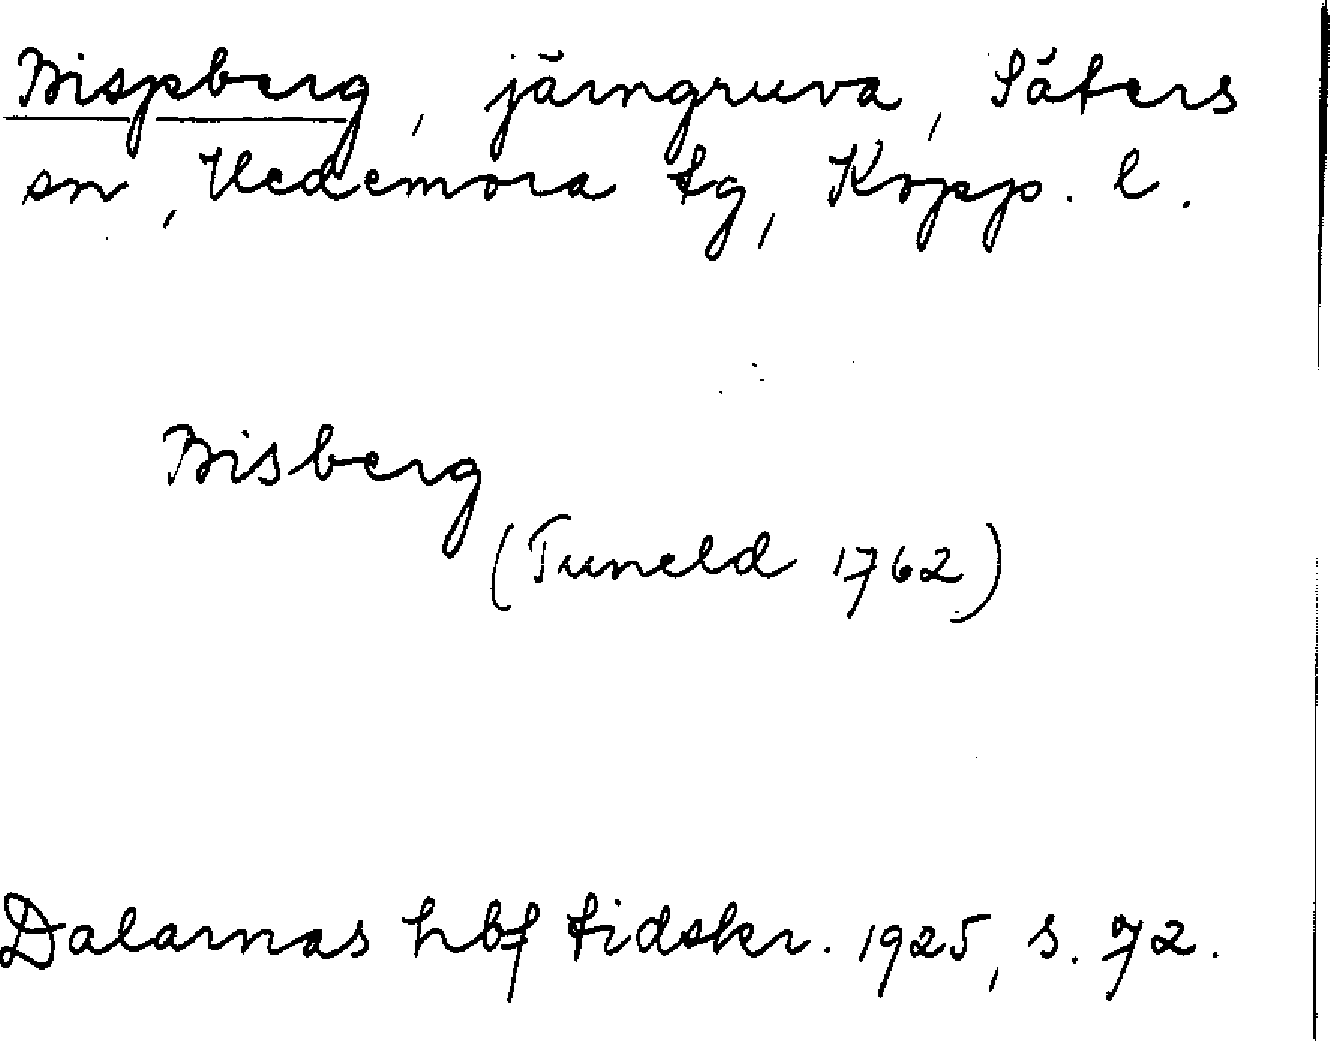 Bispberg, järngruva, Säters
sn, Hedemora tg, Kopp. l.
Bisberg
(Tuneld 1762)
Dalarnas hbf tidskr. 1925, s. 72.